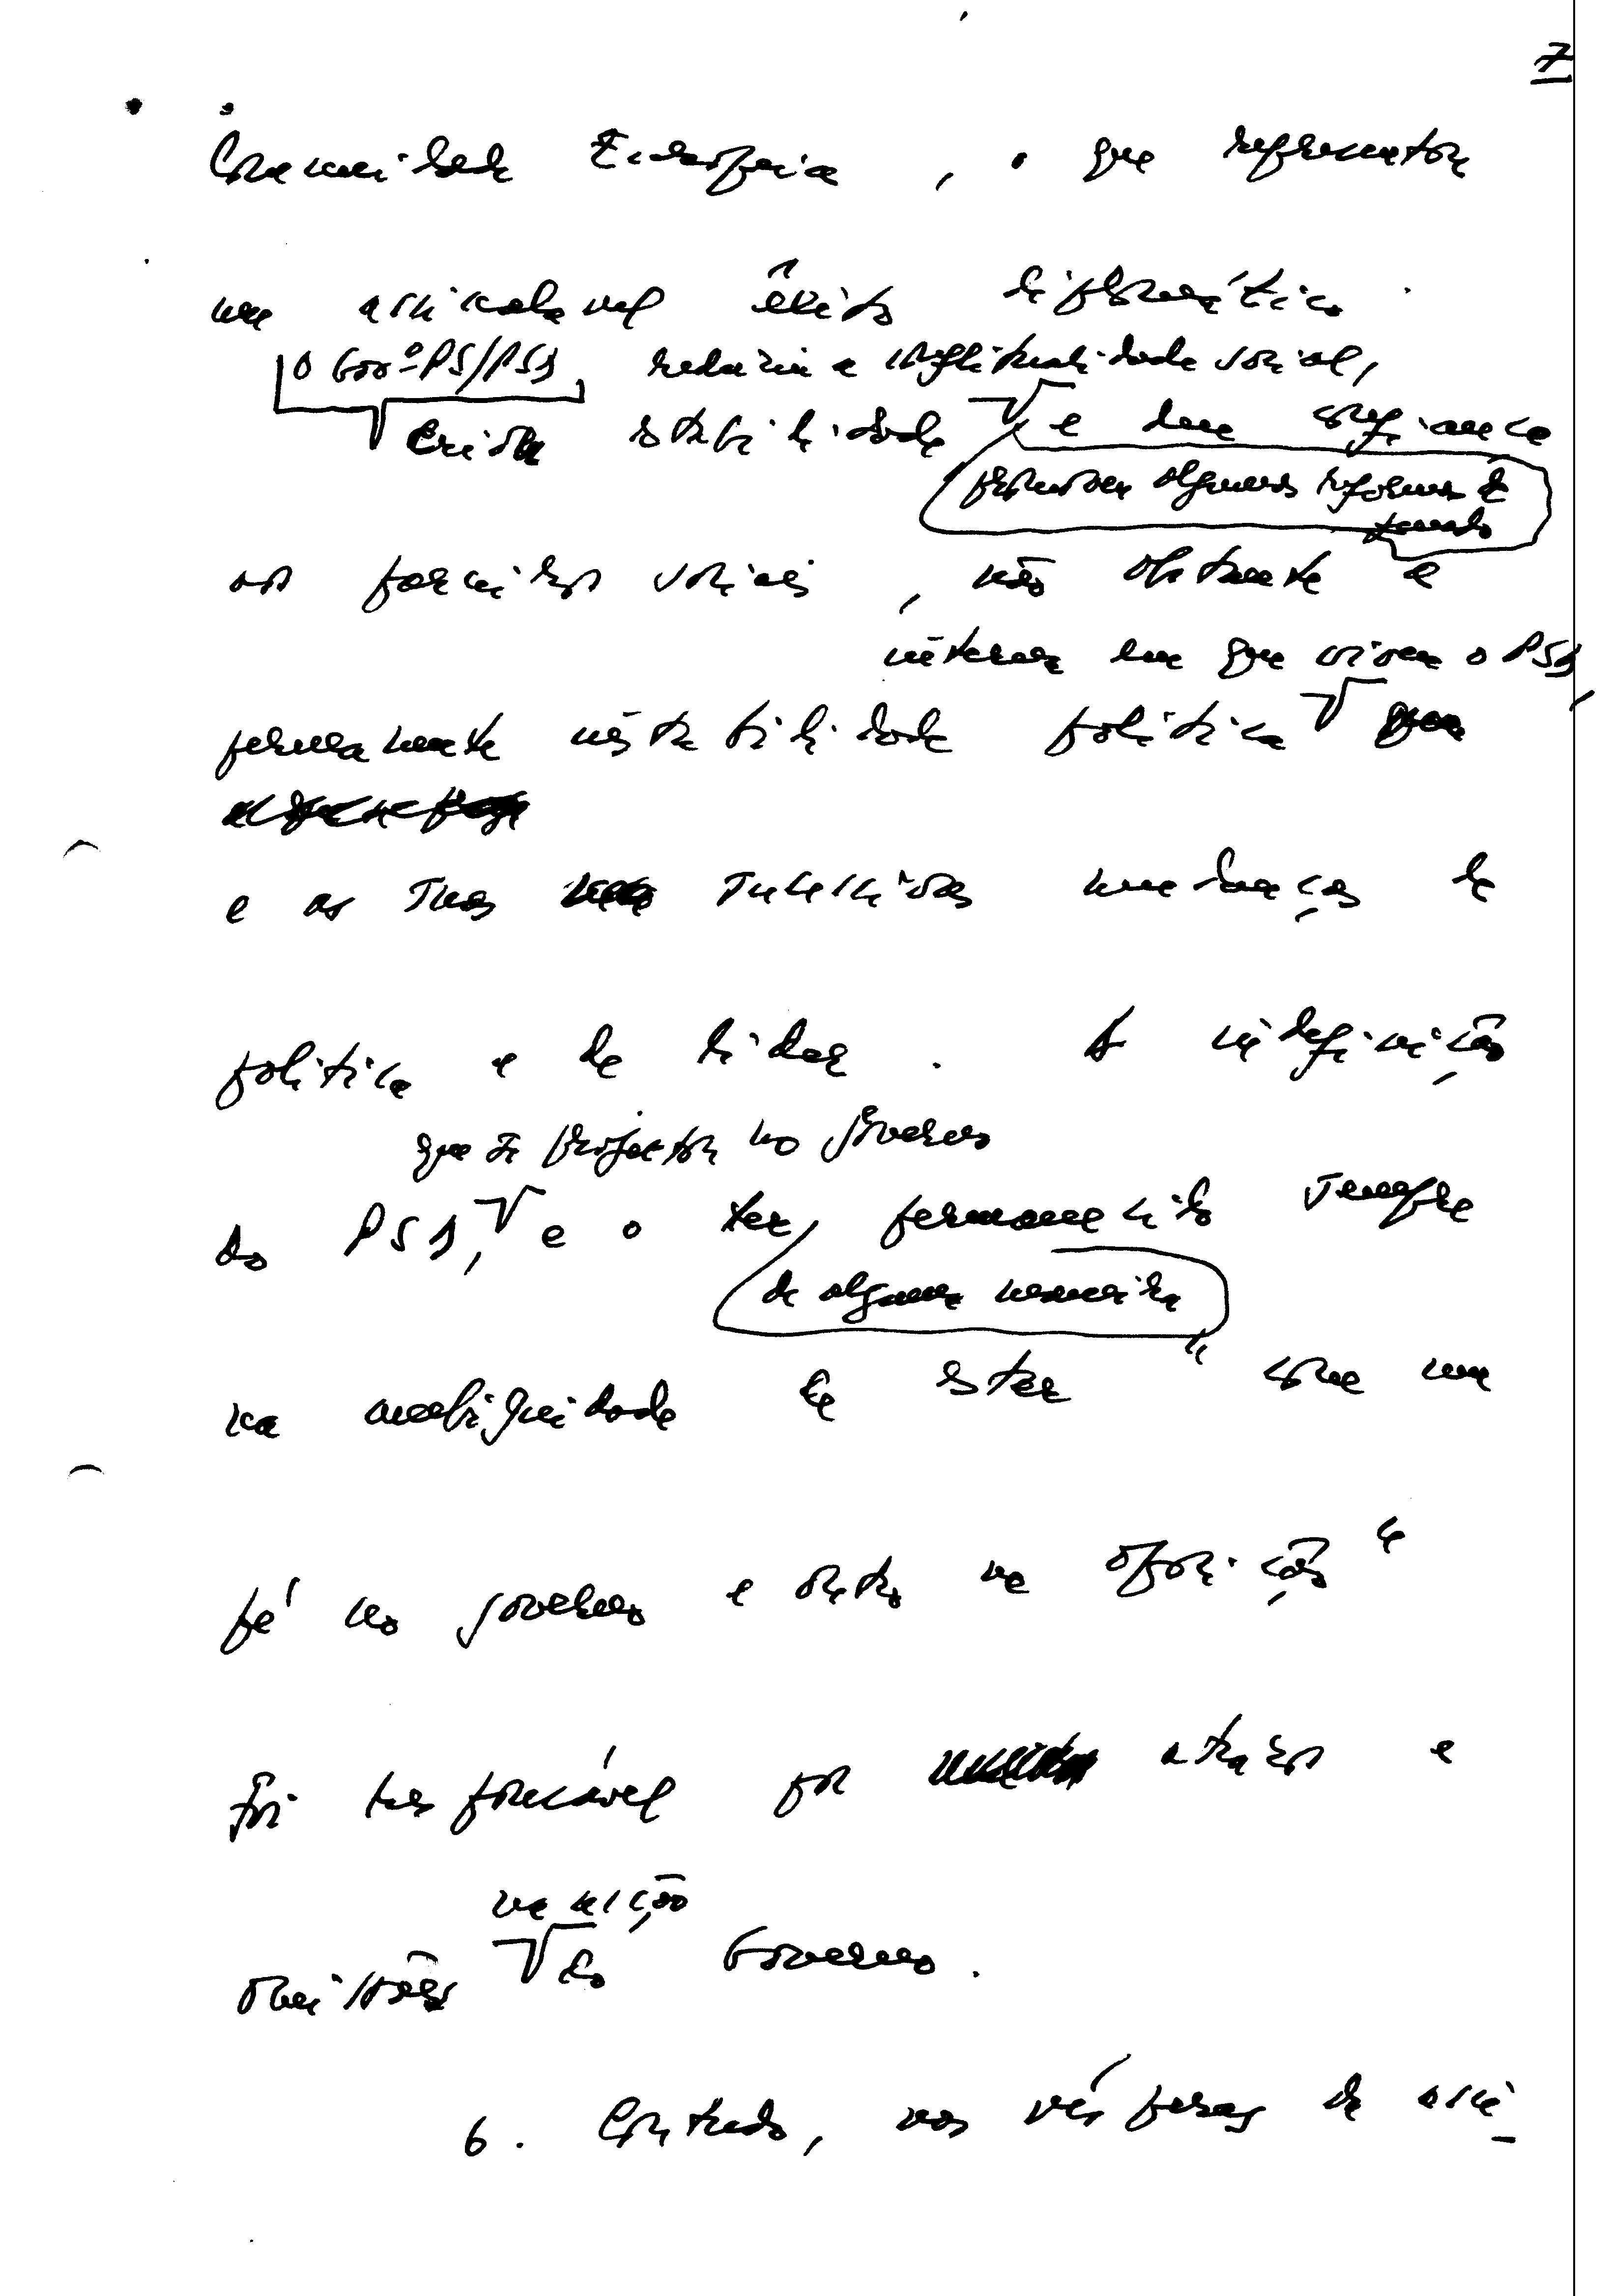 7
Comunidade Europeia, o que representou
um assinalavel êxito diplomático.
o Govº PS/PSD, reduziu a conflitualidade social,
Criou estabilidade e deu confiança
promoveu algumas reformas de
fundo
aos parceiros sociais, não obstante a
interna em que viveu o PSD,
permanente instabilidade politica
e as suas sucessivas mudanças de
politica e de lider. A indefinição
que se projectou no governo
do PSD, e o ter permanecido sempre
de alguma maneira
na ambiguidade de estar "com um
pé no governo e outro na oposição"
foi responsável por atrasos e
na acção
omissões do Governo.
6. Contudo, nas vésperas da assi-